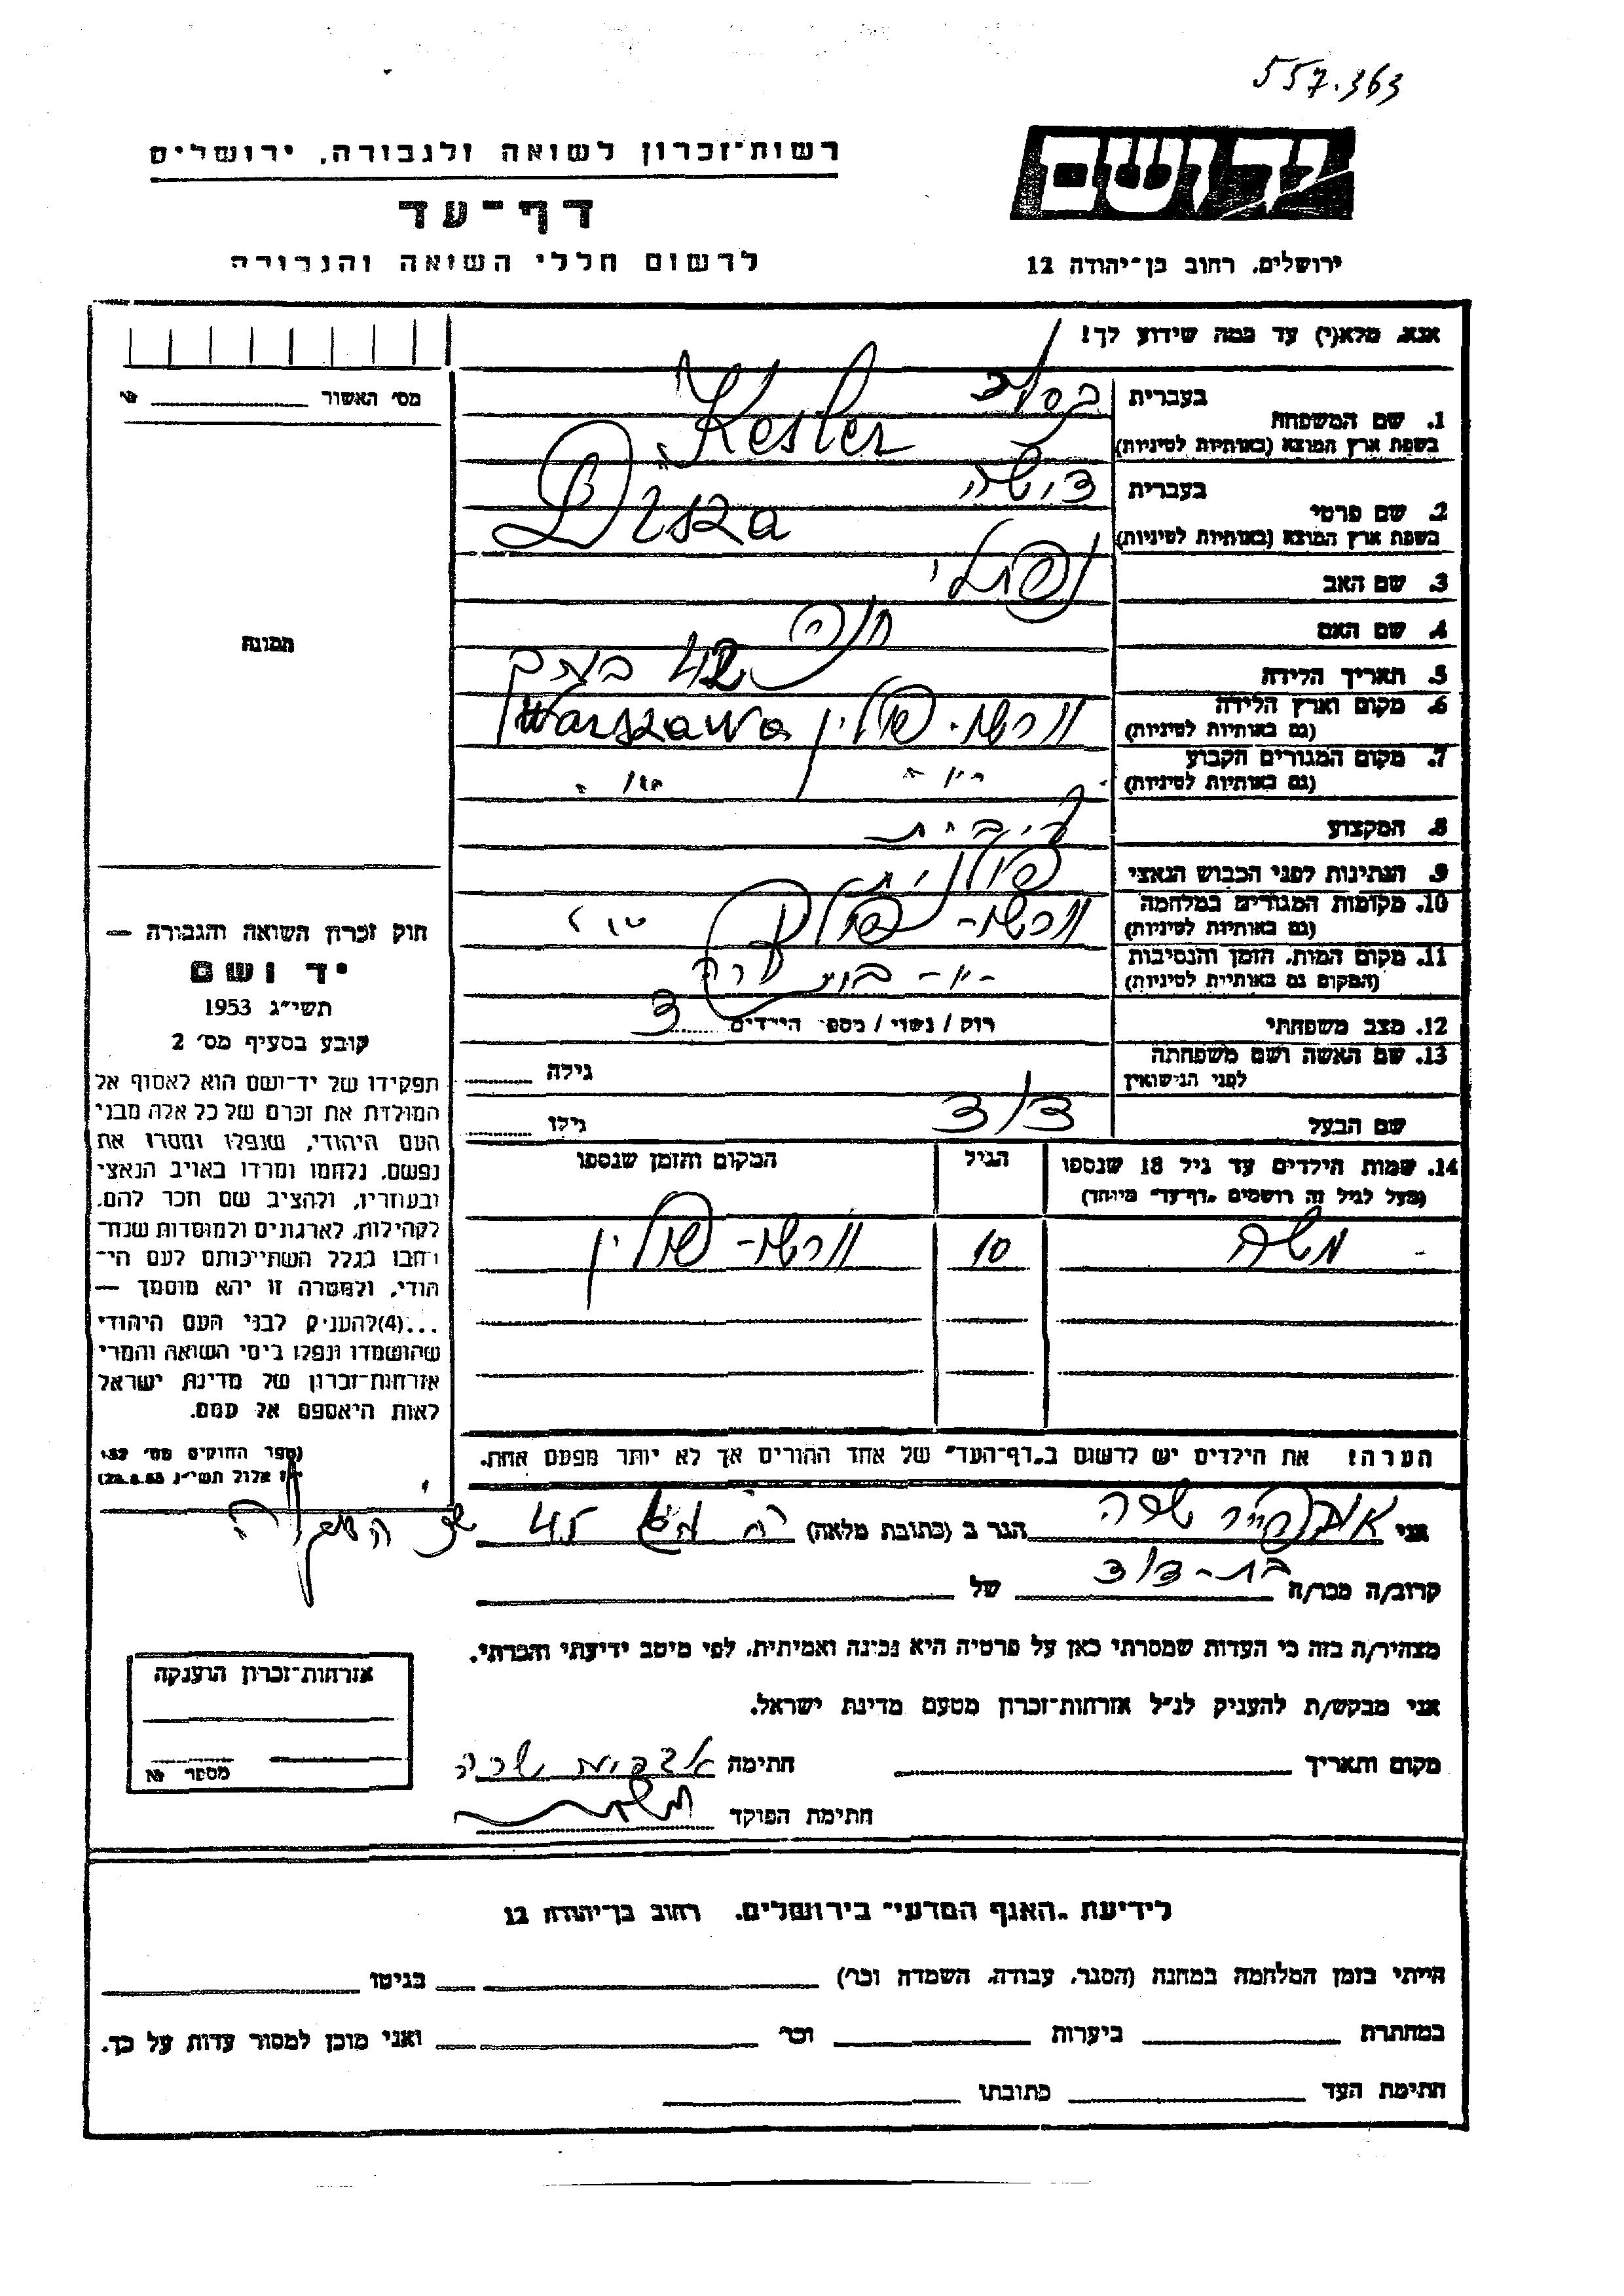 557.363
יד ושם
רשות־זכרון לשואה ולגבורה, ירושלים
דף־עד
לרשום חללי השואה והגבורה
ירושלים, רחוב בן־יהודה 12
אנא, מלא(י) עד כמה שידוע לך!
מס׳ האשור
1. שם המשפחה
בעברית
בשפת ארץ המוצא (באותיות לטיניות)
Kesler
2. שם פרטי
בעברית
בשפת ארץ המוצא (באותיות לטיניות)
3. שם האב נפתלי
4. שם האם חנה
5. תאריך הלידה 42
6. מקום וארץ הלידה ורשה - פולין Warszawa
(גם באותיות לטיניות)
7. מקום המגורים הקבוע
(גם באותיות לטיניות)
8. המקצוע
9. הנתינות לפני הכבוש הנאצי פולנית
10. מקומות המגורים במלחמה ורשה - פולין
(גם באותיות לטיניות)
11. מקום המות, הזמן והנסיבות
(המקום גם באותיות לטיניות)
12. מצב משפחתי רווק / נשוי / מספר הילדים
13. שם האשה ושם משפחתה
לפני הנישואין
גילה
שם הבעל דוד גילו
14. שמות הילדים עד גיל 18 שנספו הגיל המקום והזמן שנספו
(מעל לגיל זה רושמים „דף־עד״ מיוחד)
משה 10 ורשה - פולין
הערה! את הילדים יש לרשום ב„דף־העד״ של אחד ההורים אך לא יותר מפעם אחת.
תמונה
חוק זכרון השואה והגבורה —
יד ושם
תשי״ג 1953
קובע בסעיף מס׳ 2
תפקידו של יד־ושם הוא לאסוף אל
המולדת את זכרם של כל אלה מבני
העם היהודי, שנפלו ומסרו את
נפשם, נלחמו ומרדו באויב הנאצי
ובעוזריו, ולהציב שם וזכר להם,
לקהילות, לארגונים ולמוסדות שנח־
רבו בגלל השתייכותם לעם הי־
הודי, ולמטרה זו יהא מוסמך —
...(4) להעניק לבני העם היהודי
שהושמדו ונפלו בימי השואה והמרי
אזרחות־זכרון של מדינת ישראל
לאות היאספם אל עמם.
(ספר החוקים מס׳ 132
י״ז אלול תשי״ג 28.8.53)
אני שרה הגר ב (כתובת מלאה) 45
קרוב/ה מכר/ה בת - דוד של
מצהיר/ה בזה כי העדות שמסרתי כאן על פרטיה היא נכונה ואמיתית, לפי מיטב ידיעתי והכרתי.
אני מבקש/ת להעניק לנ״ל אזרחות־זכרון מטעם מדינת ישראל.
מקום ותאריך חתימה שרה
חתימת הפוקד
אזרחות־זכרון הוענקה
מספר №
לידיעת „האגף המדעי״ בירושלים, רחוב בן־יהודה 12
הייתי בזמן המלחמה במחנה (הסגר, עבודה, השמדה וכו׳) בגיטו
במחתרת ביערות וכו׳ ואני מוכן למסור עדות על כך.
חתימת העד כתובתו